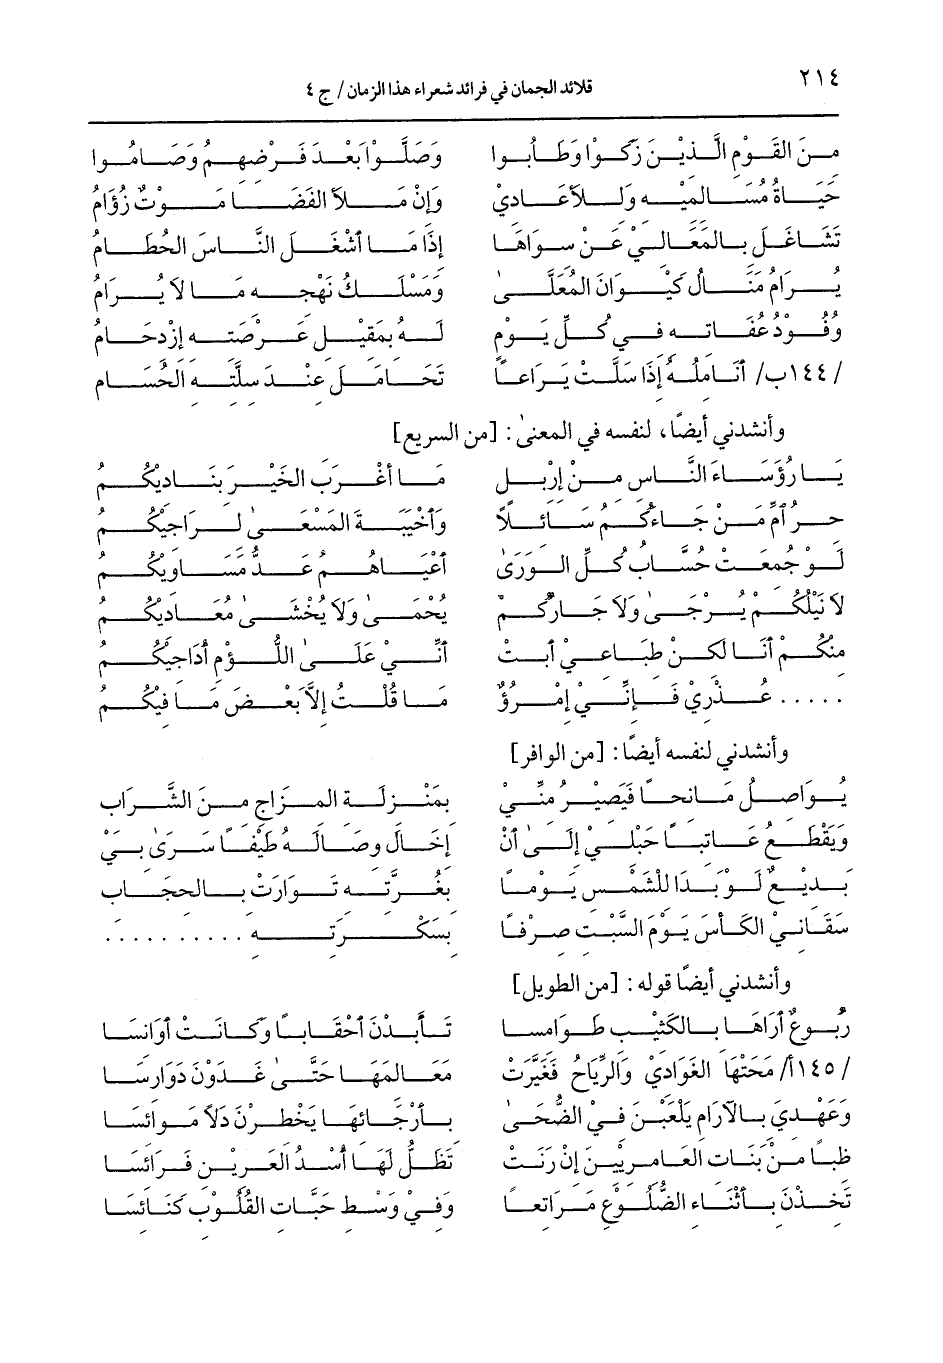 ٢١٤
قلائد الجمان في فرائد شعراء هذا الزمان/ ج ٤
مِنَ القَوْمِ الَّذِيْنَ زَكَوْا وَطَابُوا وَصَلَّوْا بَعْدَ فَرْضِهِمُ وَصَامُوا
حَيَاةُ مُسَالِمِيْهِ وَلِلأَعَادِيْ وَإِنْ مَلأَ الفَضَا مَوْتٌ زُؤَامُ
تَشَاغَلَ بِالمَعَالِيْ عَنْ سِوَاهَا إِذَا مَا أَشْغَلَ النَّاسَ الحُطَامُ
يُرَامُ مَنَالُ كَيْوَانَ المُعَلَّىٰ وَمَسْلَكُ نَهْجِهِ مَا لاَ يُرَامُ
وُفُوْدُ عُفَاتِهِ فِيْ كُلِّ يَوْمٍ لَهُ بِمَقِيْلِ عَرْصَتِهِ إِزْدِحَامُ
/١٤٤ب/ أَنَامِلُهُ إِذَا سَلَّتْ يَرَاعًا تَحَامَلَ عِنْدَ سَلَّتِهِ الحُسَامُ
وأنشدني أيضًا، لنفسه في المعنىٰ: [من السريع]
يَا رُؤَسَاءَ النَّاسِ مِنْ إِرْبِلٍ مَا أَغْرَبَ الخَيْرَ بِنَادِيكُمُ
حُرِّمَ مَنْ جَاءَكُمْ سَائِلاً وَأَخْيَبَةَ المَسْعَىٰ لِرَاجِيكُمُ
لَوْ جُمِعَتْ حُسَّابُ كُلِّ الوَرَىٰ أَعْيَاهُمُ عَدُّ مَسَاوِيكُمُ
لاَ نَيْلُكُمْ يُرْجَىٰ وَلاَ جَارُكُمْ يُحْمَىٰ وَلاَ يُخْشَىٰ مُعَادِيكُمُ
مِنْكُمْ أَنَا لَكِنْ طِبَاعِيْ أَبَتْ أَنِّيْ عَلَىٰ اللُّؤْمِ أُدَاجِيكُمُ
..... عُذْرِيْ فَإِنِّيْ إِمْرُؤٌ مَا قُلْتُ إِلاَّ بَعْضَ مَا فِيكُمُ
وأنشدني لنفسه أيضًا: [من الوافر]
يُوَاصِلُ مَانِحًا فَيَصِيْرُ مِنِّيْ بِمَنْزِلَةِ المِزَاجِ مِنَ الشَّرَابِ
وَيَقْطَعُ عَاتِبًا حَبْلِيْ إِلَىٰ أَنْ إِخَالَ وِصَالَهُ طَيْفًا سَرَىٰ بِيْ
بَدِيْعٌ لَوْ بَدَا لِلشَّمْسِ يَوْمًا بِغُرَّتِهِ تَوَارَتْ بِالحِجَابِ
سَقَانِيْ الكَأْسَ يَوْمَ السَّبْتِ صِرْفًا بِسَكْرَتِهِ ..........
وأنشدني أيضًا قوله: [من الطويل]
رُبُوعٌ أَرَاهَا بِالكَثِيْبِ طَوَامِسَا تَأَبَّدْنَ أَحْقَابًا وَكَانَتْ أَوَانِسَا
/١٤٥أ/ مَحَتْهَا الغَوَادِيْ وَالرِّيَاحُ فَغَيَّرَتْ مَعَالِمَهَا حَتَّىٰ غَدَوْنَ دَوَارِسَا
وَعَهْدِيَ بِالآرَامِ يَلْعَبْنَ فِيْ الضُّحَىٰ بِأَرْجَائِهَا يَخْطِرْنَ دَلاًّ مَوَائِسَا
ظِبًا مِنْ بَنَاتِ العَامِرِيِّيْنَ إِنْ رَنَتْ تَظَلُّ لَهَا أُسْدُ العَرِيْنِ فَرَائِسَا
تَخِذْنَ بِأَثْنَاءِ الضُّلُوْعِ مَرَاتِعًا وَفِيْ وَسْطِ حَبَّاتِ القُلُوْبِ كَنَائِسَا